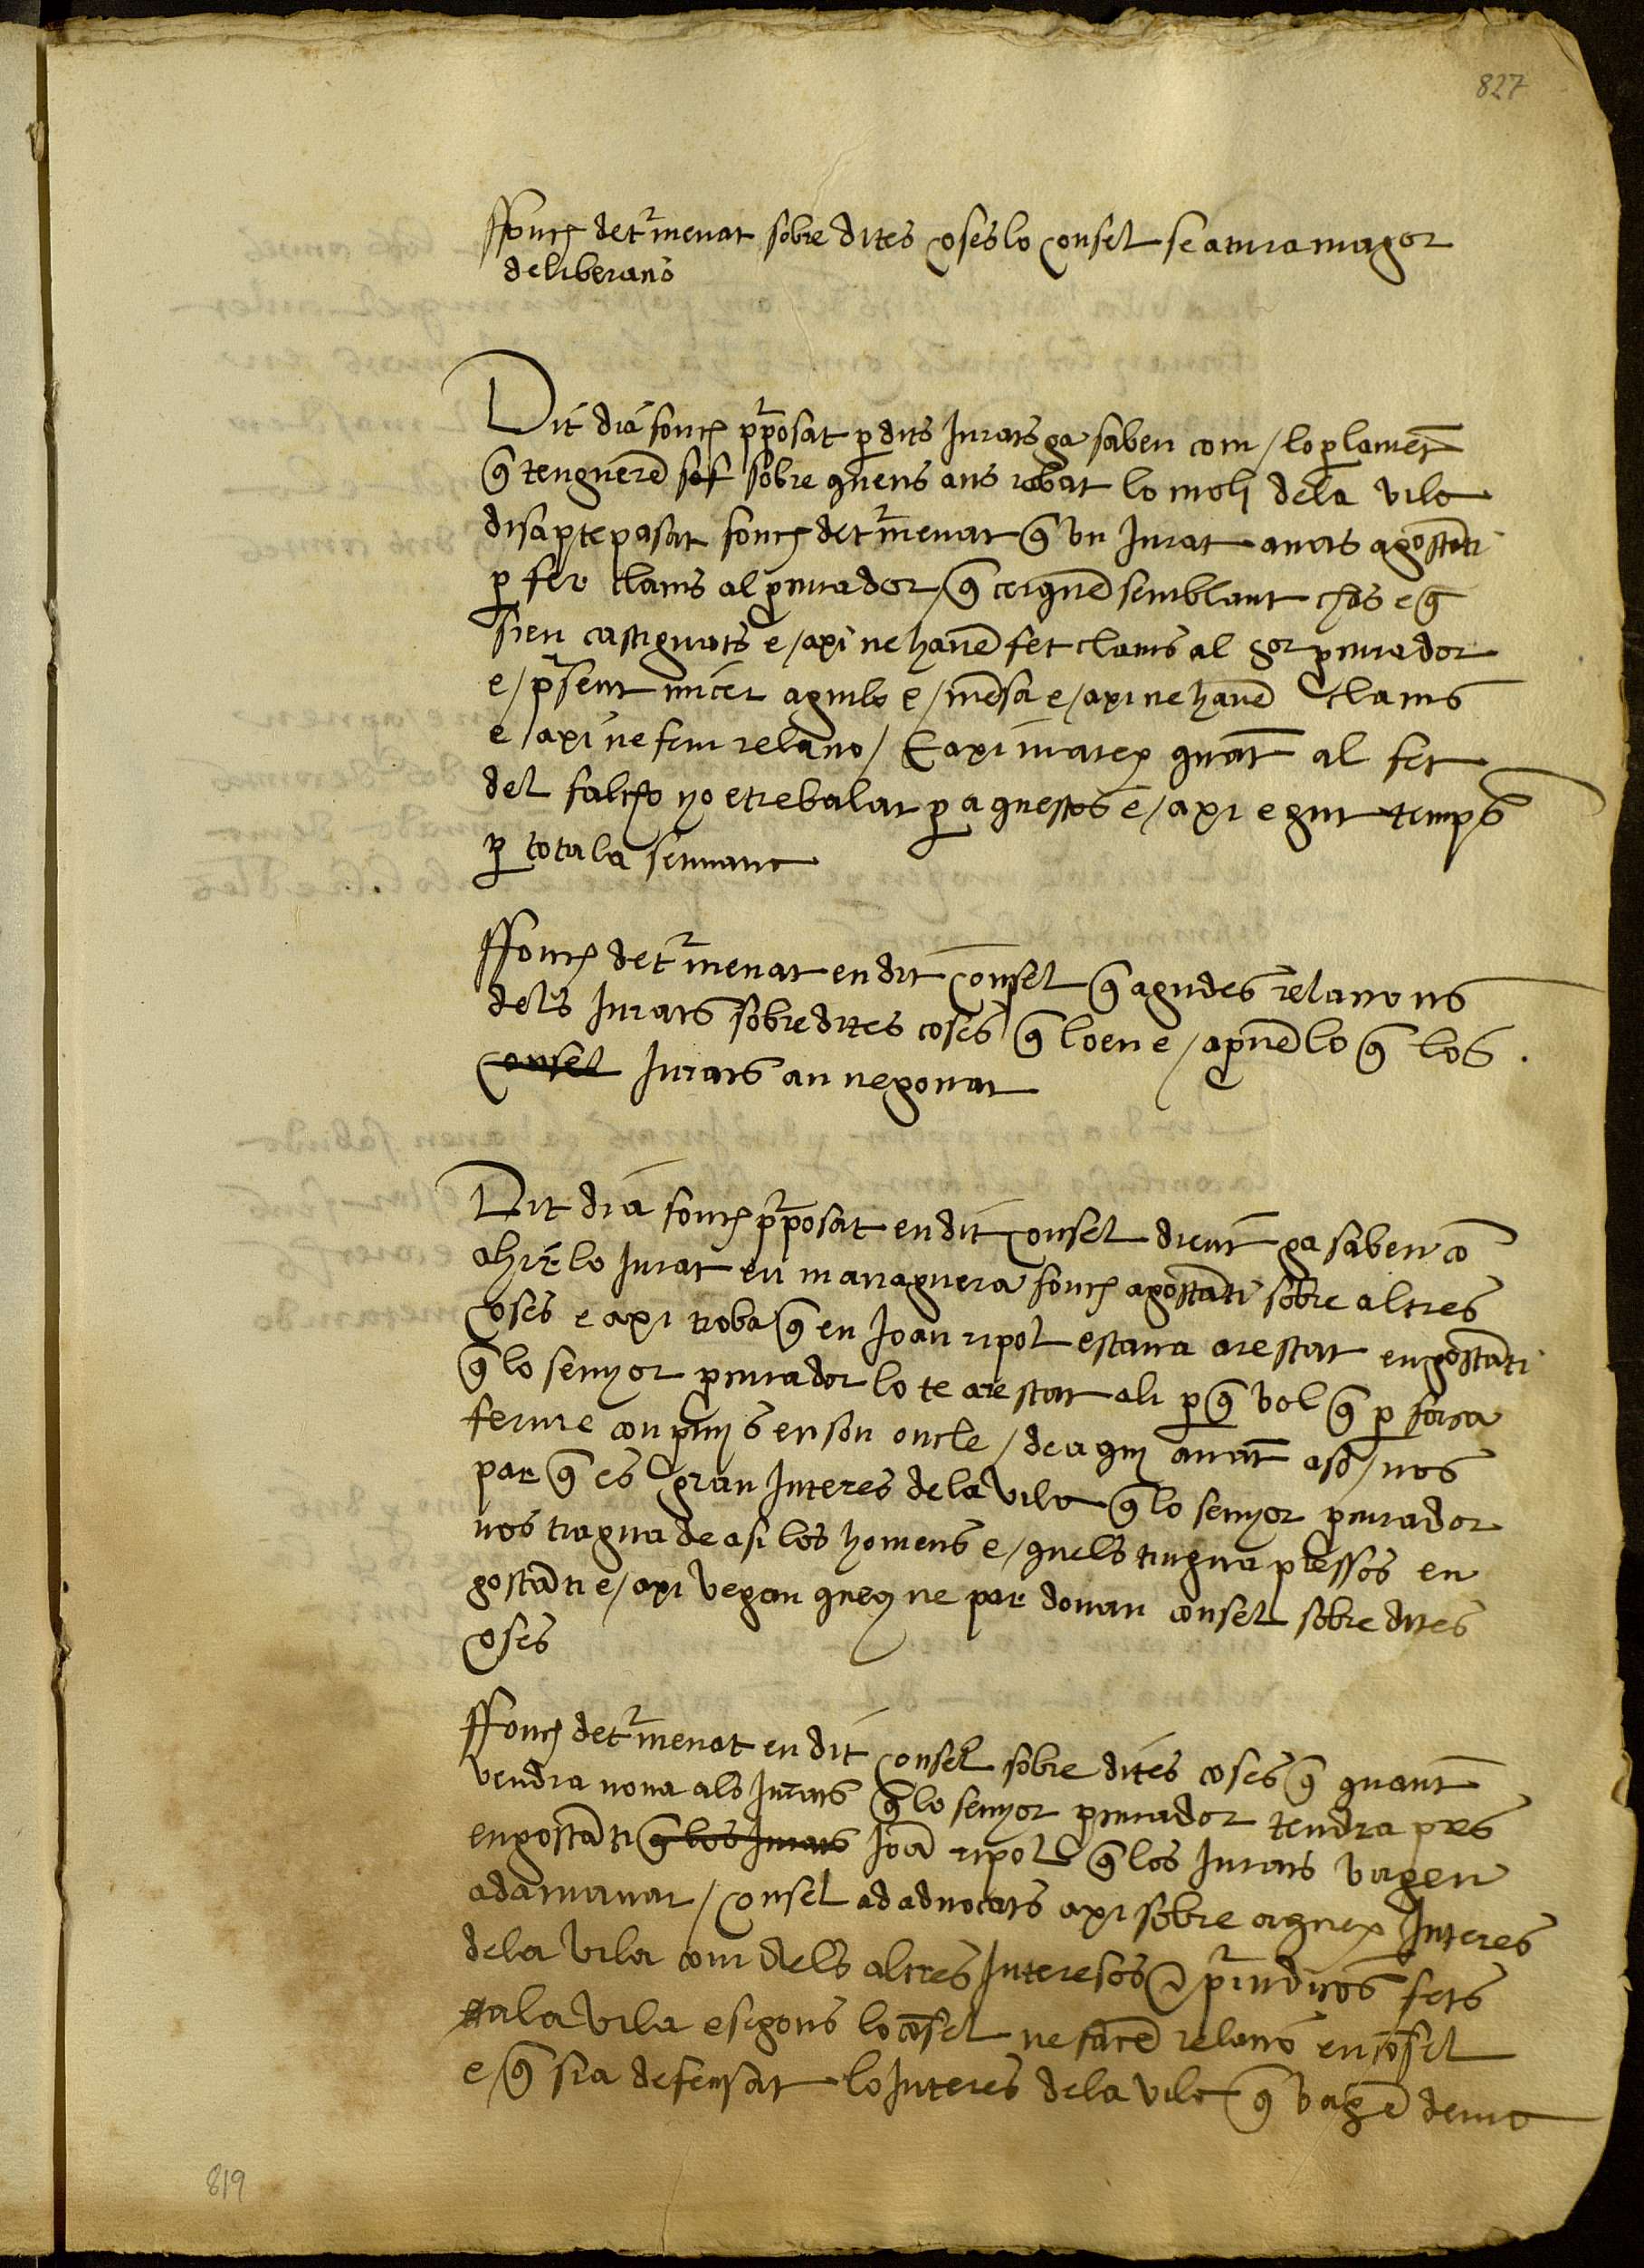 827
ffonch det'menat sobre dites coses lo consel se atura major
deliberacio
Dit dia fonch pposat p dits Jurats ja saben com / lo plament
q̃ tenguerẽ sof sobre quens ans robat lo moli dela vila
disapte pasat fonch det'menat q̃ vn Jurat anas a gostãti
p fer clams al pcurador / q̃ cerquẽ semblant chos e q̃
sien castiguats e / axi ne havẽ fet clams al sor pcurador
e / psent micer aguilo e / mẽsa e / axi ne havẽ clams
e / axi ne fem relacio / E axi matex quãt al fet
del falcho yo e trebalat p aquestos e / axi e gut temps
p tota la semana
ffonch det'menat en dit consel q̃ agudes relacions
dels Jurats sobre dites coses q̃ loen e / aprvẽ lo q̃ los
consel Jurats an negociat
Dit dia fonch pposat en dit consel dient ja saben cõ
ahir lo Jurat en managuera fonch a gostãti sobre altres
coses e axi troba q̃ en Joan ripol estava arestat en gostãti
q̃ lo senyor pcurador lo te arestat ali p q̃ vol q̃ p forca
ferme conpmis en son oncle / de aquj avãt asõ / nos
par q̃ es gran Interes dela vila q̃ lo senyor pcurador
nos tragua de asi los homens e / quels tingua pressos en
gostãti e / axi vegen quey ne par donan consel sobre dites
coses
ffonch det'menat en dit consel sobre dites coses q̃ quant
vendra nova als Jurats q̃ lo senyor pcurador tendra pres
en gostãti q̃ los Jurats Joã ripol q̃ los Jurats vagen
a damanar / consel ad advocats axi sobre aquex Interes
dela vila com dels altres Interesos e p'iudicis fets
ala vila e segons lo cõsel ne facẽ relacio en cõsel
e q̃ sia defensat lo Interes dela vila q̃ vagẽ
819